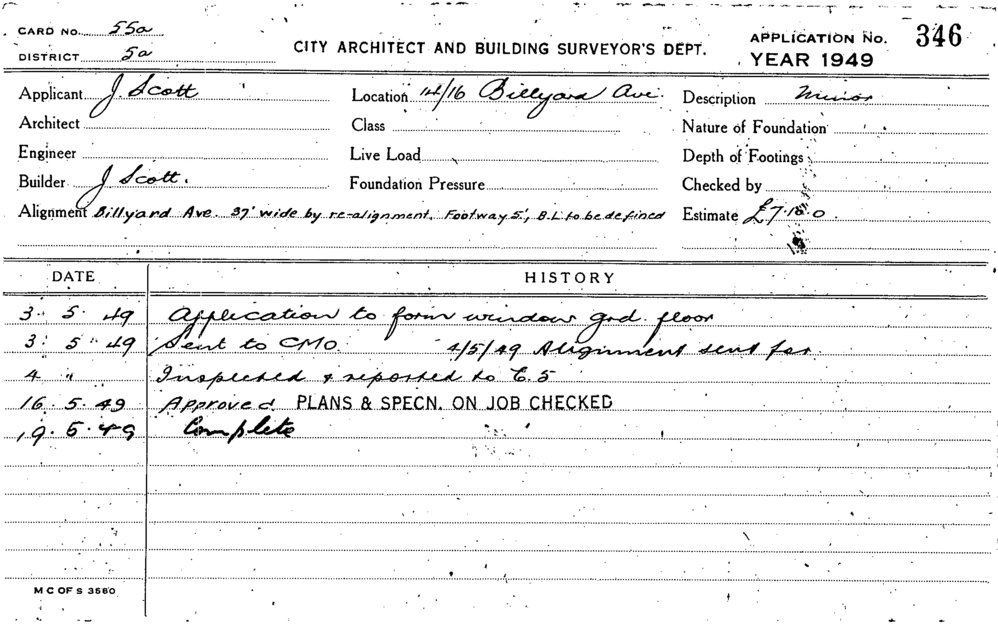 CARD NO. 55a
DISTRICT 5a
CITY ARCHITECT AND BUILDING SURVEYOR'S DEPT.
APPLICATION No. 346
YEAR 1949
Applicant J. Scott
Location 14/16 Billyard Ave.
Description Minor
Architect
Class
Nature of Foundation
Engineer
Live Load
Depth of Footings
Builder J Scott.
Foundation Pressure
Checked by
Alignment Billyard Ave. 37' wide by re-alignment. Footway 5', B.L. to be defined
Estimate £7.18.0
DATE HISTORY
3. 5. 49 Application to form window grd. floor
3. 5. 49 Sent to CMO. 4/5/49 Alignment sent for.
4 " Inspected & reported to C.S
16. 5. 49 Approved PLANS & SPECN. ON JOB CHECKED
19. 5. 49 Complete
M C OF S 3580